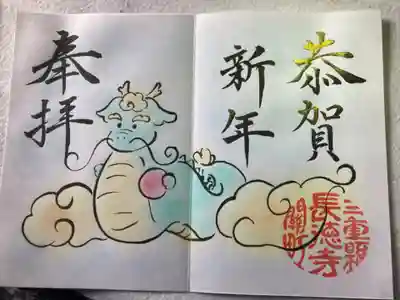 恭賀
新年
奉拝
三重縣
長徳寺
関町